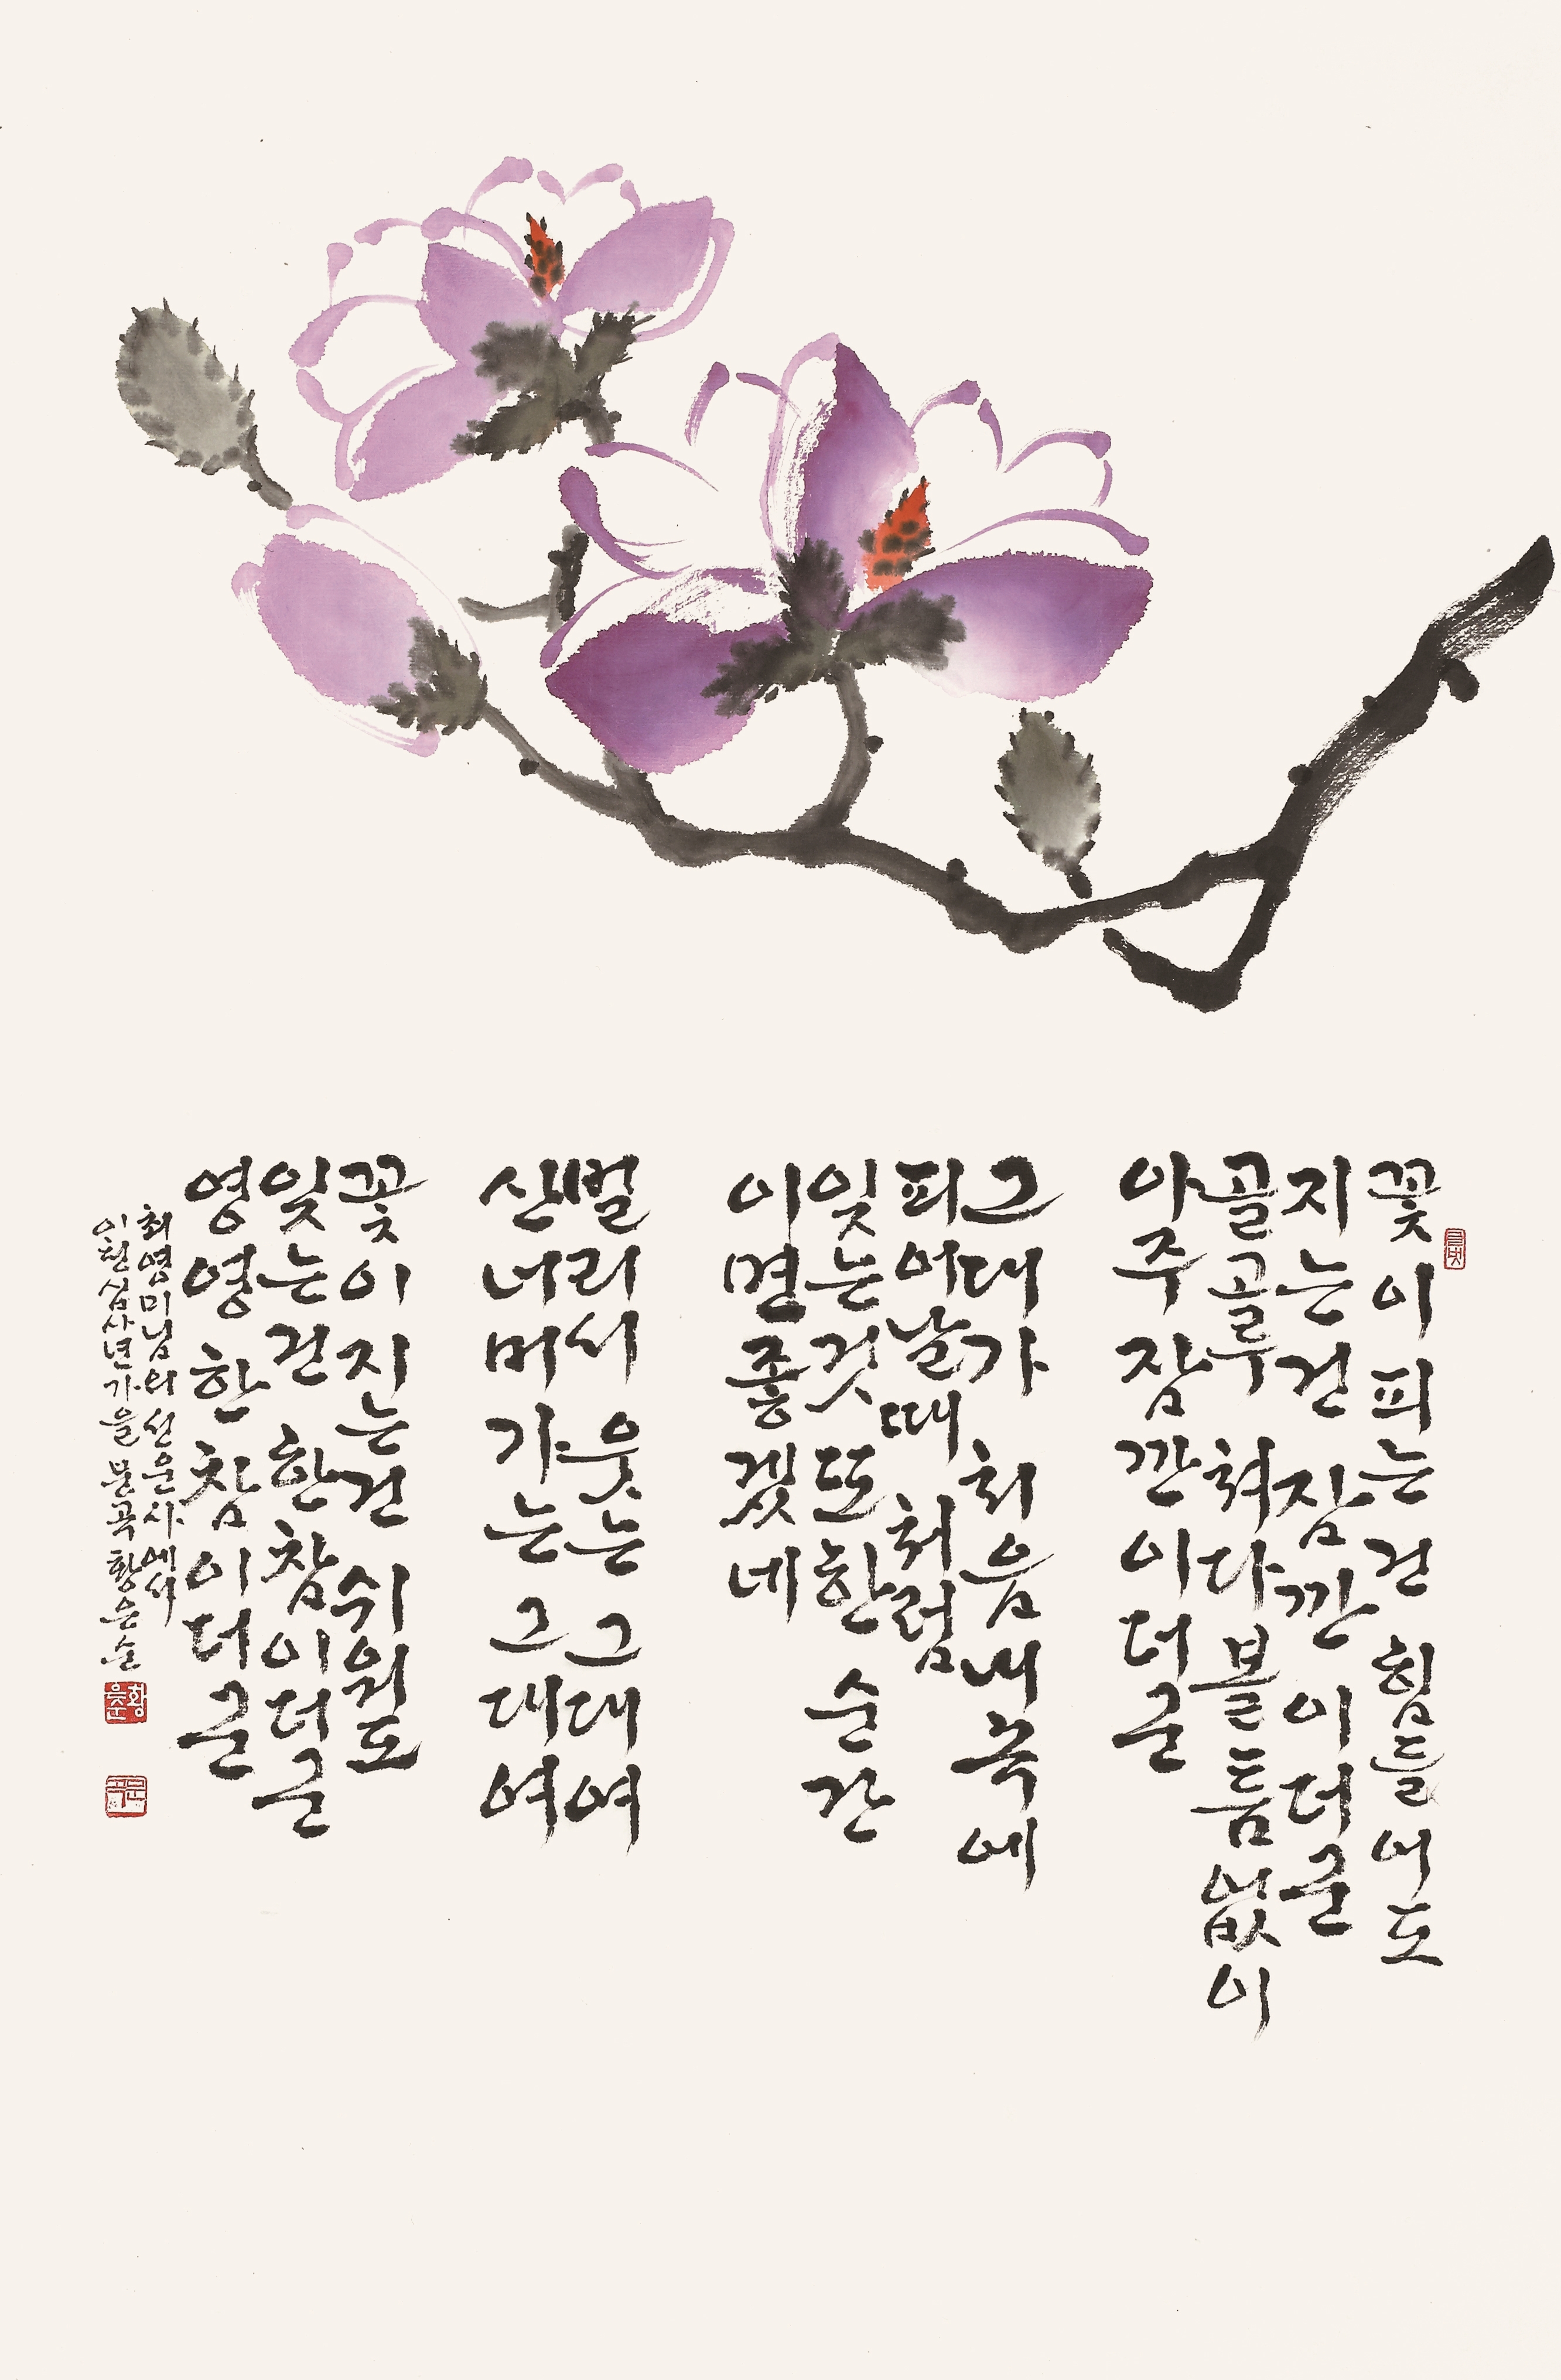 꽃이 피는건 힘들어도
지는건 잠깐이더군
골골루 쳐다볼틈없이
아주 잠깐이더군
그대가 처음 내 속에
피어날때 처럼
잊는것 또한 순간
이면 좋겠네
멀리서 웃는 그대여
산너머 가는 그대여
꽃이 지는건 쉬워도
잊는건 한참이더군
영영 한참이더군
최영미님의 선운사에서
이천십사년 가을 문곡 황은순